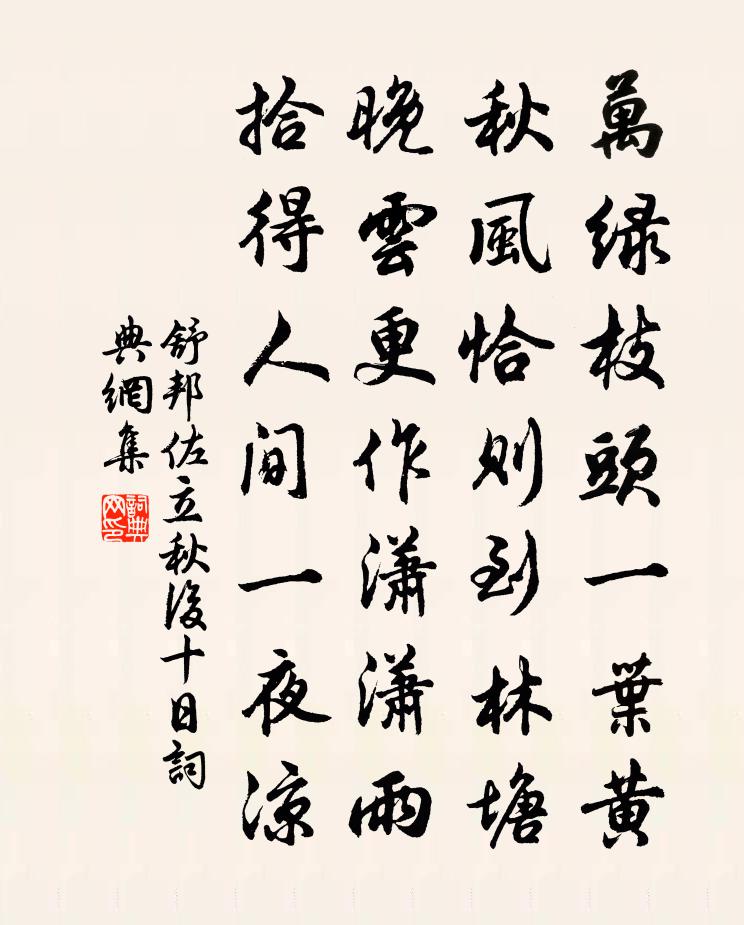 萬緑枝頭一葉黄
秋風恰則到林塘
晚雲更作瀟瀟雨
拾得人间一夜涼
舒邦佐立秋後十日詞
典網集
詞典
網印